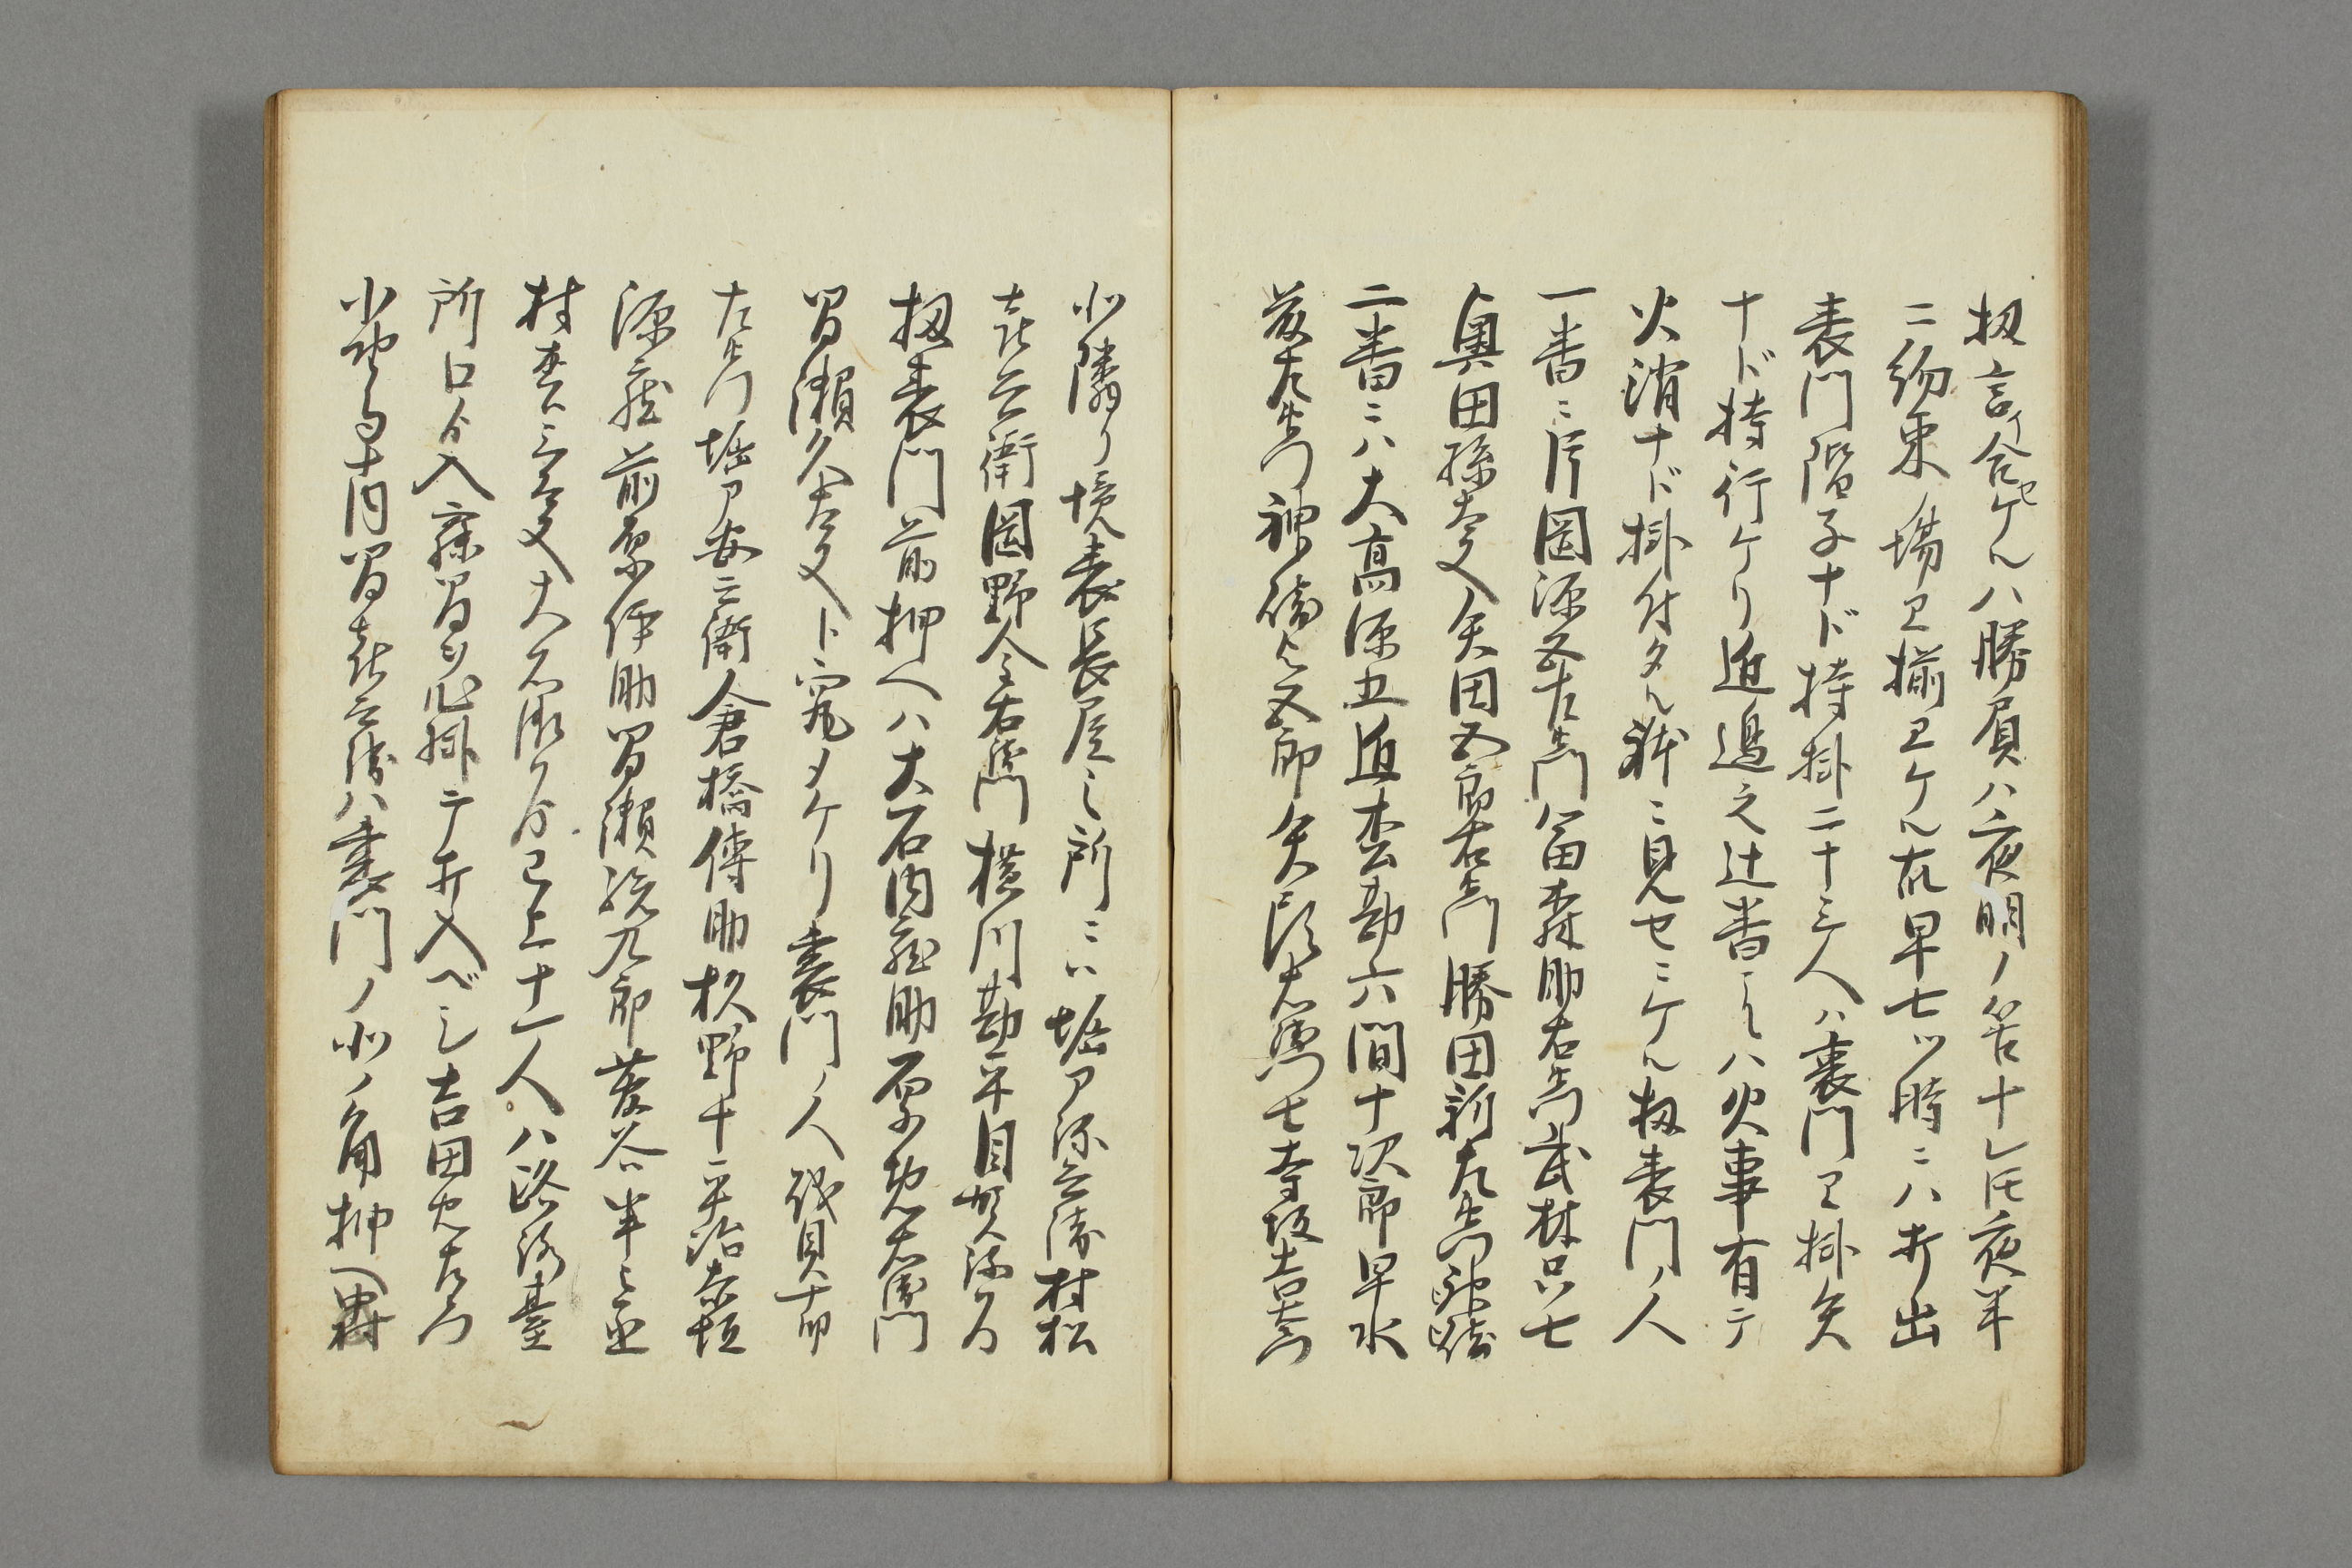 扨言合セケルハ勝負ハ夜明ノ筈ナレ𪜈夜半
ニ約束ノ場エ揃エケル故早七ツ時ニハ打出
表門階子ナド持掛二十三人ハ裏門エ掛矢
ナド持行ケリ近邊之辻番ニハ火事有テ
火消ナド掛付タル躰ニ見セニケル扨表門ノ人
一番ニ片岡源五右衛門富森助右衛門武林只七
奥田孫太夫矢田五郎右衛門勝田新左衛門
二番ニハ大高源五近松勘六間十次郎早水
藤左衛門神崎与五郎矢頭右衛門七寺坂吉右衛門
北隣リ境表長屋之所ニハ堀ア弥兵衛村松
喜兵衛岡野金右衛門横川勘平貝賀弥
扨表門前押ヘハ大石内蔵助原惣右衛門
間瀬久太夫ト究メケリ裏門ノ人磯貝十郎
左衛門堀ア安兵衛倉橋傳助杉野十平治赤垣
源蔵前原伊助間瀬孫九郎菅谷半之丞
村松三太夫大石瀬ヨリ已上十一人ハ路次臺
所口ヨリ入寐間ヲ心掛テ打入ベシ吉田忠左衛門
小野寺十内間喜兵衛ハ裏門ノ北ノ角押ヘ